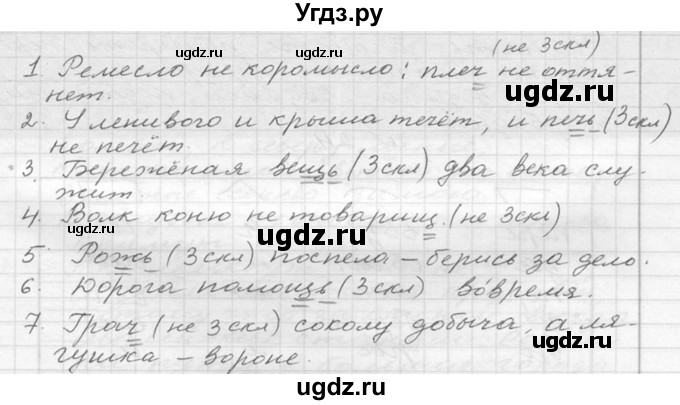 Угдз.ру
(не 3скл)
1 Ремесло не коромысло: плеч не оття-
нет.
2. У ленивого и крыша течёт, и печь (3скл)
не печёт.
3. Бережёная вещь (3скл) два века слу-
жит.
4. Волк коню не товарищ. (не 3скл)
5. Рожь (3скл) поспела – берись за дело.
6. Дорога помощь (3скл) вовремя.
7. Грач (не 3скл) соколу добыча, а ля-
гушка – вороне.
ugdz.ru
ugdz.ru
ugdz.ru
ugdz.ru
ugdz.ru
ugdz.ru
ugdz.ru
ugdz.ru
ugdz.ru